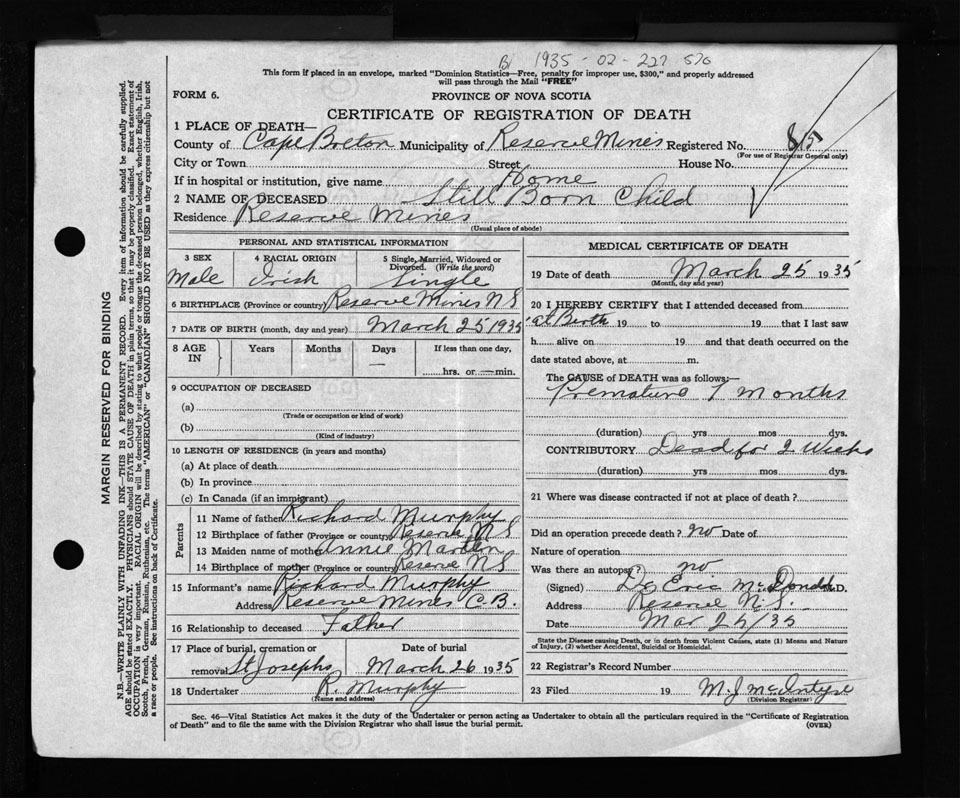 B 1935 - 02 - 227 576
This form if placed in an envelope, marked "Dominion Statistics—Free, penalty for improper use, $300," and properly addressed
will pass through the Mail "FREE"
FORM 6.
PROVINCE OF NOVA SCOTIA
CERTIFICATE OF REGISTRATION OF DEATH
1 PLACE OF DEATH—
County of Cape Breton Municipality of Reserve Mines Registered No. 815
(For use of Registrar General only)
City or Town Street House No.
If in hospital or institution, give name Home
2 NAME OF DECEASED Still Born Child
Residence Reserve Mines
(Usual place of abode)
PERSONAL AND STATISTICAL INFORMATION
3 SEX 4 RACIAL ORIGIN 5 Single, Married, Widowed or
Divorced. (Write the word)
Male Irish Single
6 BIRTHPLACE (Province or country) Reserve Mines N S
7 DATE OF BIRTH (month, day and year) March 25 1935
8 AGE IN Years Months Days If less than one day,
— hrs. or — min.
9 OCCUPATION OF DECEASED
(a)
(Trade or occupation or kind of work)
(b)
(Kind of industry)
10 LENGTH OF RESIDENCE (in years and months)
(a) At place of death
(b) In province
(c) In Canada (if an immigrant)
Parents
11 Name of father Richard Murphy
12 Birthplace of father (Province or country) Reserve N S
13 Maiden name of mother Annie Martin
14 Birthplace of mother (Province or country) Reserve N S
15 Informant's name Richard Murphy
Address Reserve Mines C. B.
16 Relationship to deceased Father
17 Place of burial, cremation or Date of burial
removal St Josephs March 26 1935
18 Undertaker R. Murphy
(Name and address)
MEDICAL CERTIFICATE OF DEATH
19 Date of death March 25 1935
(Month, day and year)
20 I HEREBY CERTIFY that I attended deceased from
at Birth 19 to 19 that I last saw
h alive on 19 and that death occurred on the
date stated above, at m.
The CAUSE of DEATH was as follows:—
Premature 7 Months
(duration) yrs mos dys.
CONTRIBUTORY Dead for 2 Weeks
(duration) yrs mos dys.
21 Where was disease contracted if not at place of death?
Did an operation precede death? no Date of
Nature of operation
Was there an autopsy? no
(Signed) Dr Eric McDonald M.D.
Address Reserve N.S.
Date Mar 25/35
State the Disease causing Death, or in death from Violent Causes, state (1) Means and Nature
of Injury, (2) whether Accidental, Suicidal or Homicidal.
22 Registrar's Record Number
23 Filed 19 M. J. McIntyre
(Division Registrar)
Sec. 46—Vital Statistics Act makes it the duty of the Undertaker or person acting as Undertaker to obtain all the particulars required in the "Certificate of Registration
of Death" and to file the same with the Division Registrar who shall issue the burial permit. (OVER)
MARGIN RESERVED FOR BINDING
N.B.—WRITE PLAINLY WITH UNFADING INK—THIS IS A PERMANENT RECORD. Every item of information should be carefully supplied.
AGE should be stated EXACTLY. PHYSICIANS should STATE CAUSE OF DEATH in plain terms, so that it may be properly classified. Exact statement of
OCCUPATION is very important. RACIAL ORIGIN will be described by stating to what people or tongue the deceased person belonged, whether English, Irish,
Scotch, French, German, Russian, Ruthenian, etc. The terms "AMERICAN" or "CANADIAN" SHOULD NOT BE USED as they express citizenship but not
a race or people. See instructions on back of Certificate.